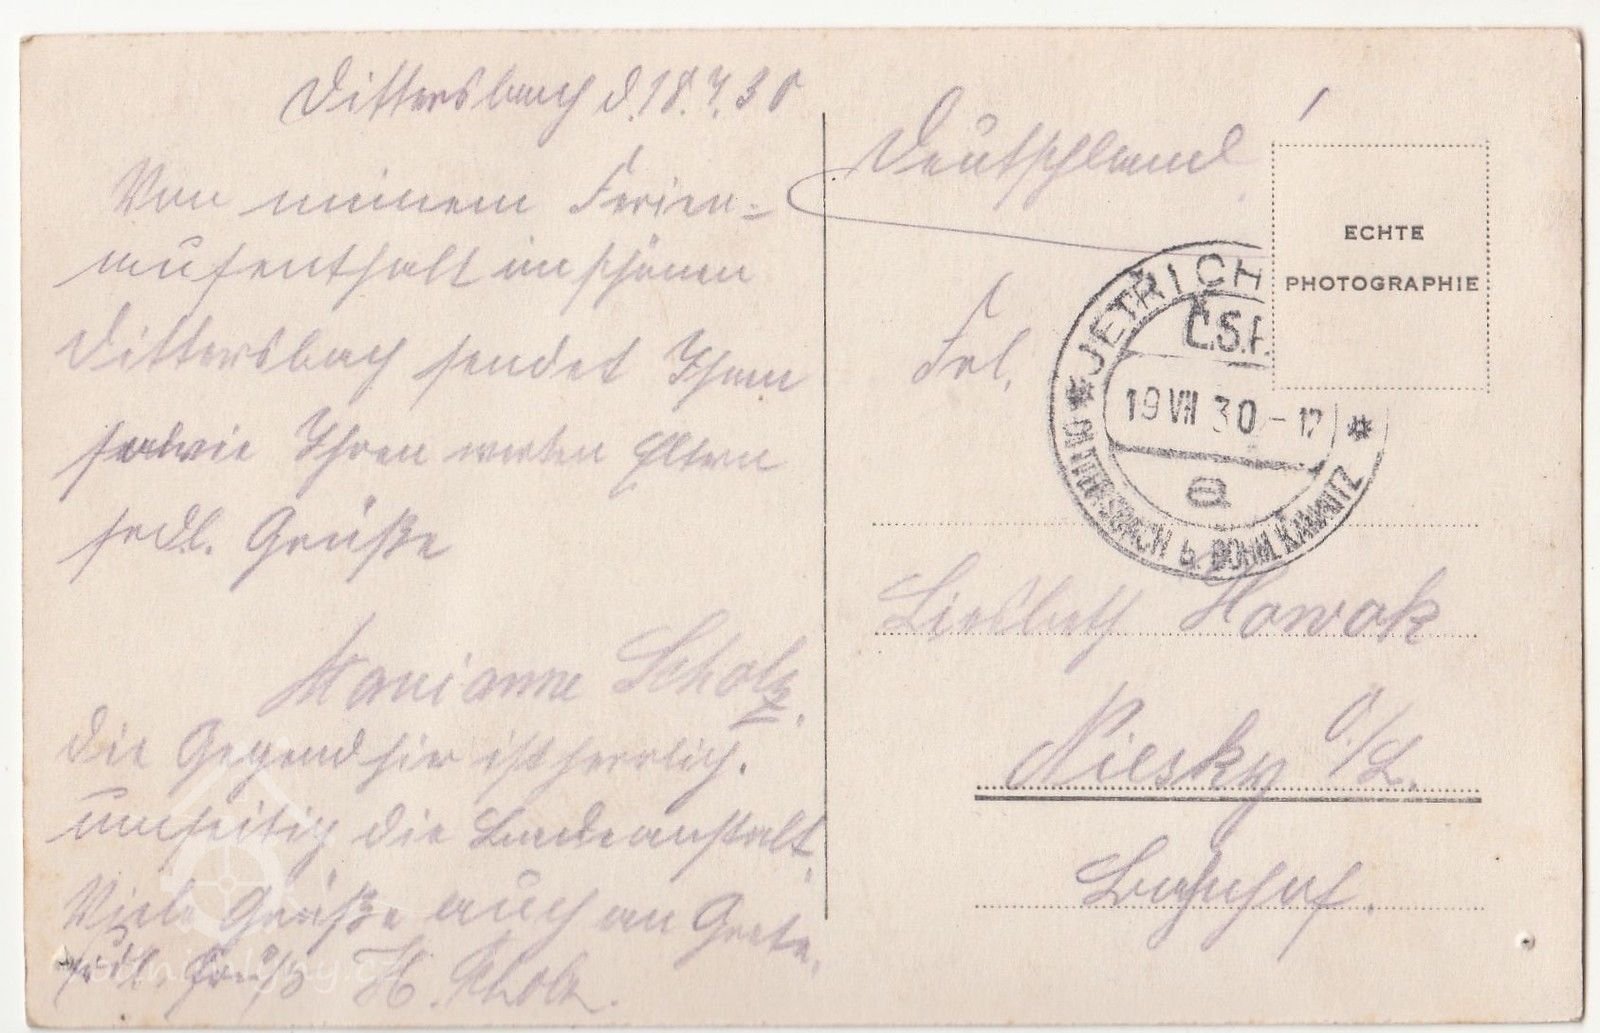 Dittersbach d. 18.7.30
Von meinem Ferien-
aufenthalt im schönen
Dittersbach sendet Ihnen
sowie Ihren werten Eltern
frdl. Grüße
Marianne Scholz.
Die Gegend hier ist herrlich.
Umseitig die Badeanstalt.
Viele Grüße auch an Grete.
frdl. Gruß H. Scholz.
Deutschland
ECHTE
PHOTOGRAPHIE
JETRICH
Č.S.R.
19 VII 30 - 12
a
DITTERSBACH b. BÖHM. KAMNITZ
Frl.
Liesbeth Nowak
Niesky O./L.
Bahnhof.